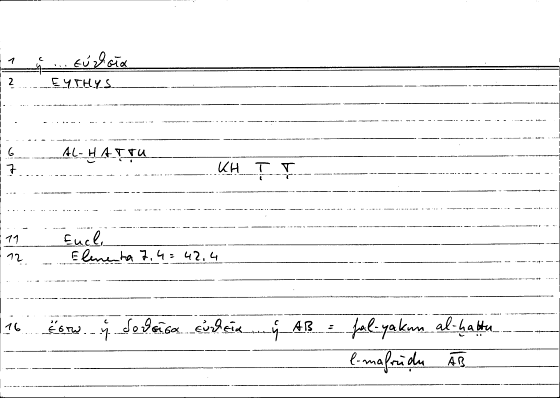 1 ἡ ... εὐθεῖα
2 EYTHYS
6 AL-ḪAṬṬU
7 KH Ṭ Ṭ
11 Eucl.
12 Elementa 7.4 = 42.4
16 ἔστω ἡ δοθεῖσα εὐθεῖα .. ἡ AB = fal-yakun al-ḫaṭṭu
l-mafrūḍu A͞B͞